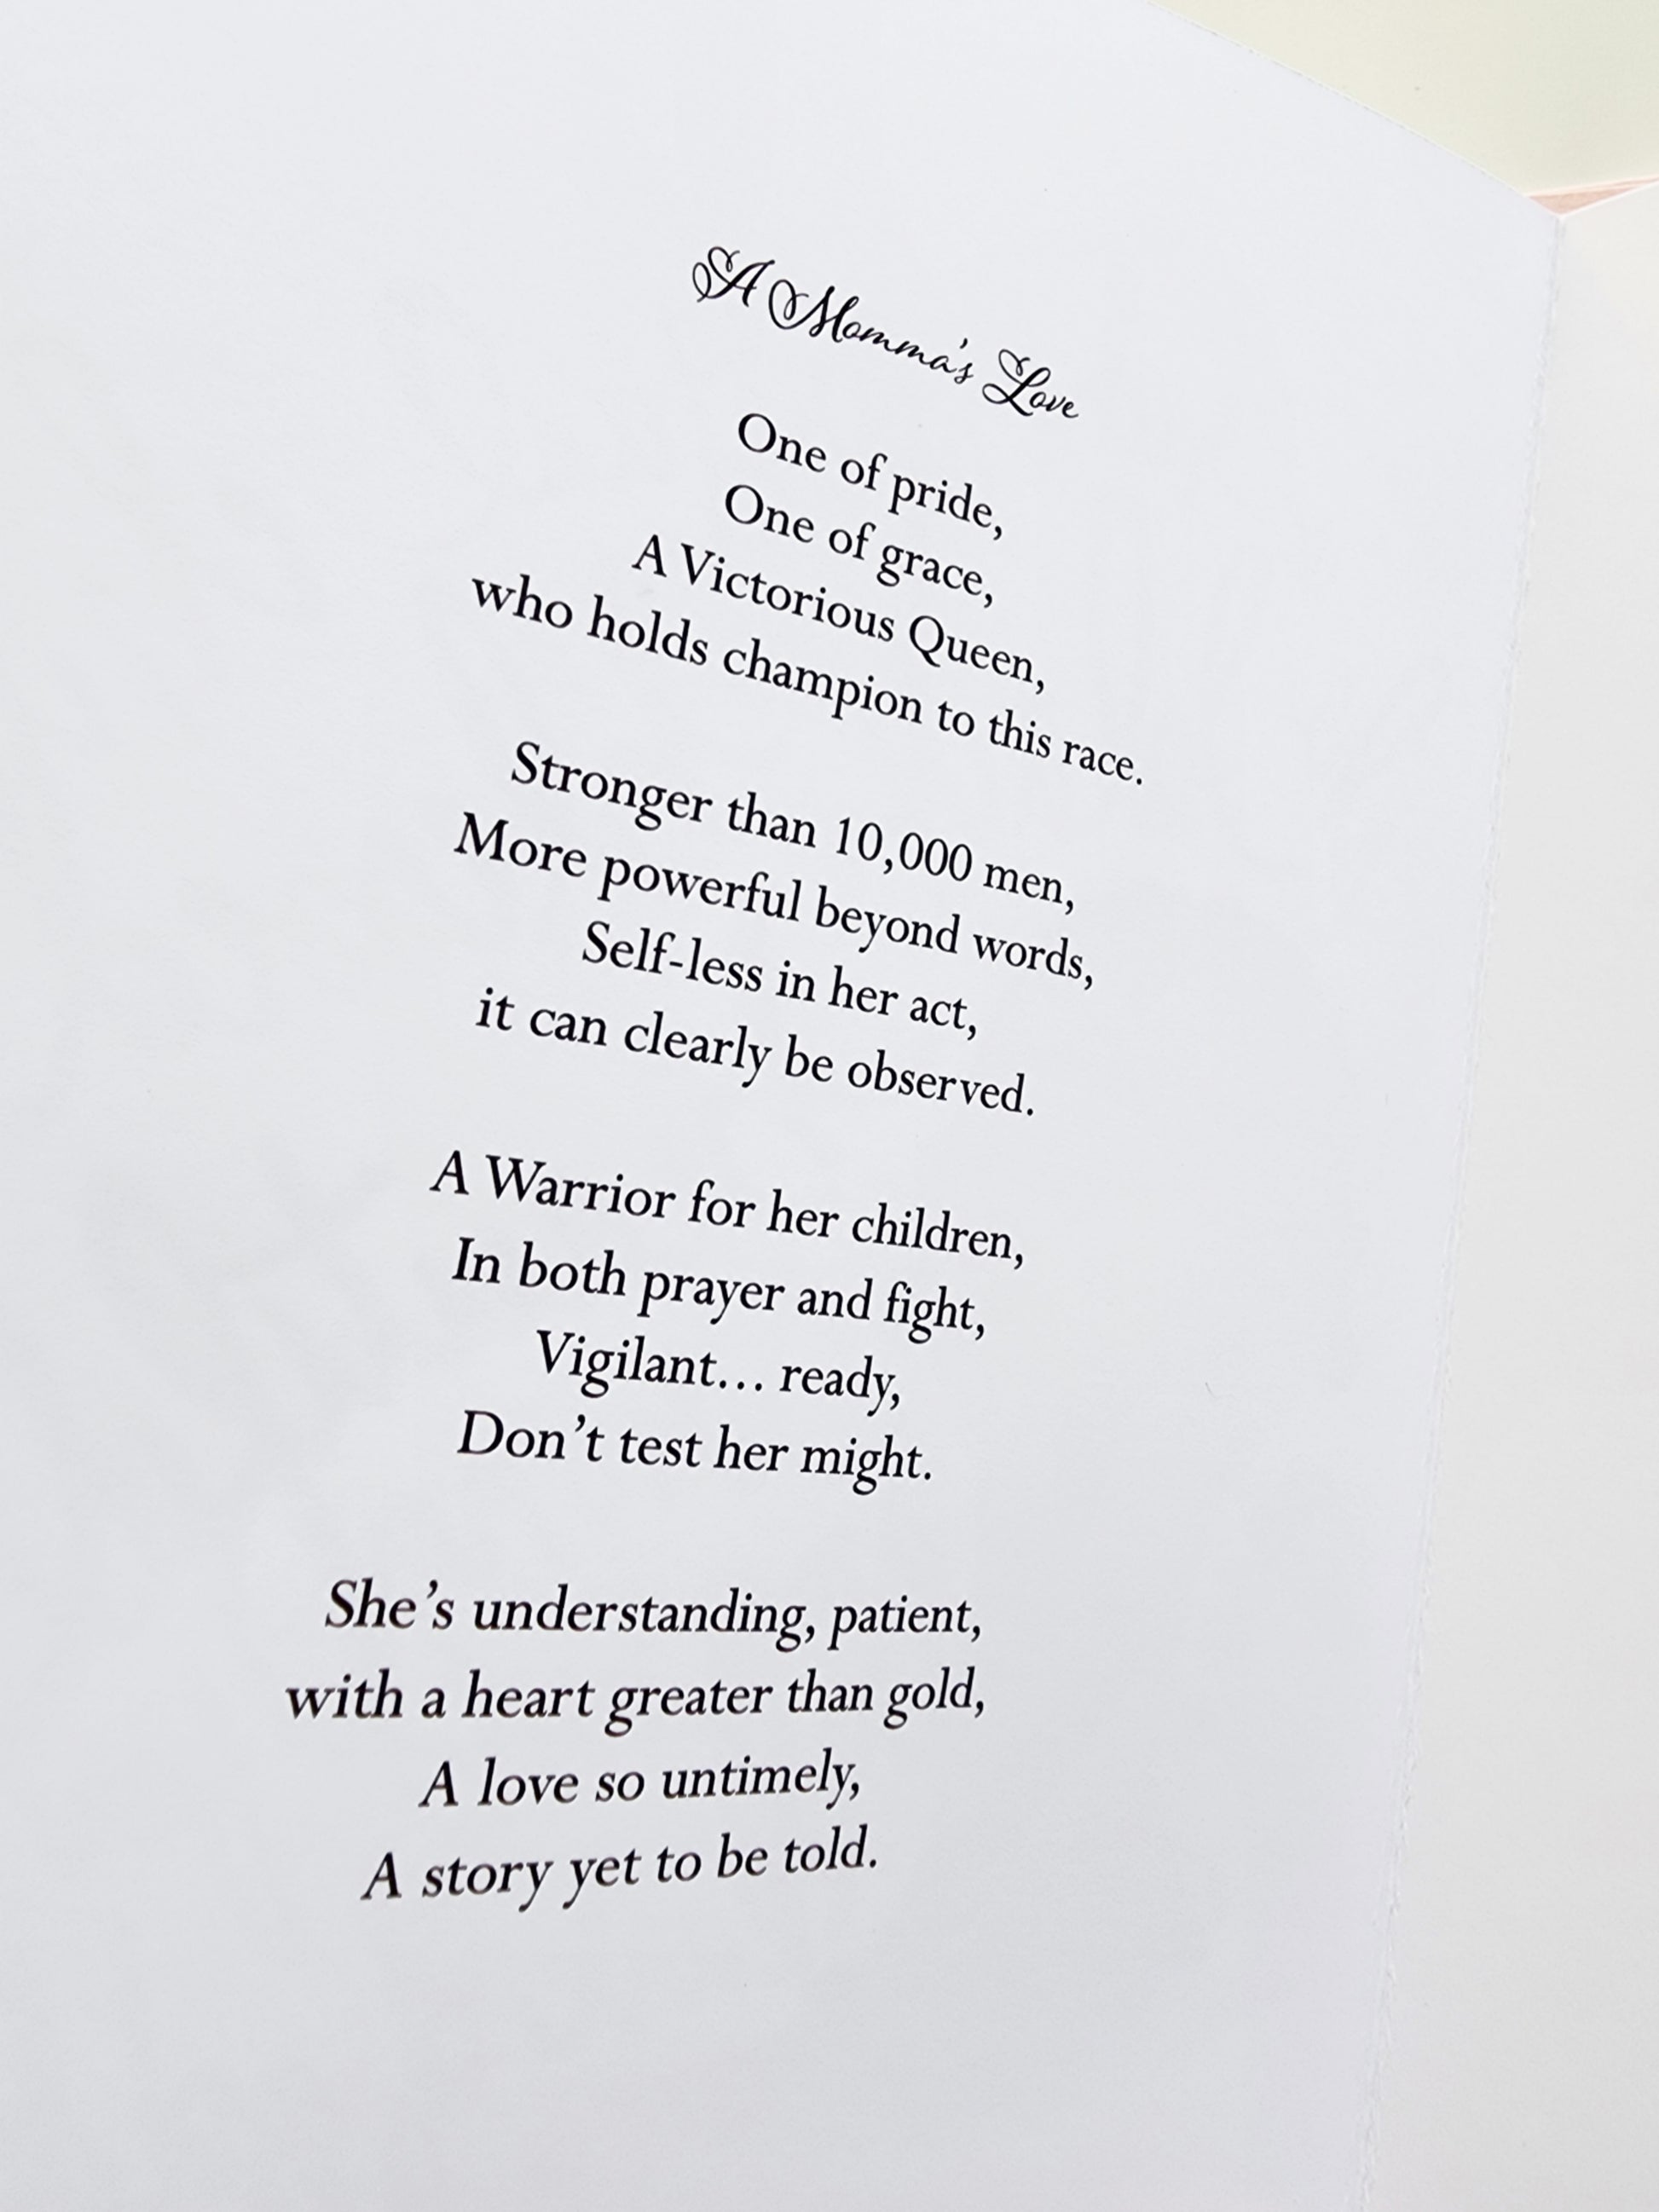 A Momma's Love
One of pride,
One of grace,
A Victorious Queen,
who holds champion to this race.
Stronger than 10,000 men,
More powerful beyond words,
Self-less in her act,
it can clearly be observed.
A Warrior for her children,
In both prayer and fight,
Vigilant... ready,
Don't test her might.
She's understanding, patient,
with a heart greater than gold,
A love so untimely,
A story yet to be told.